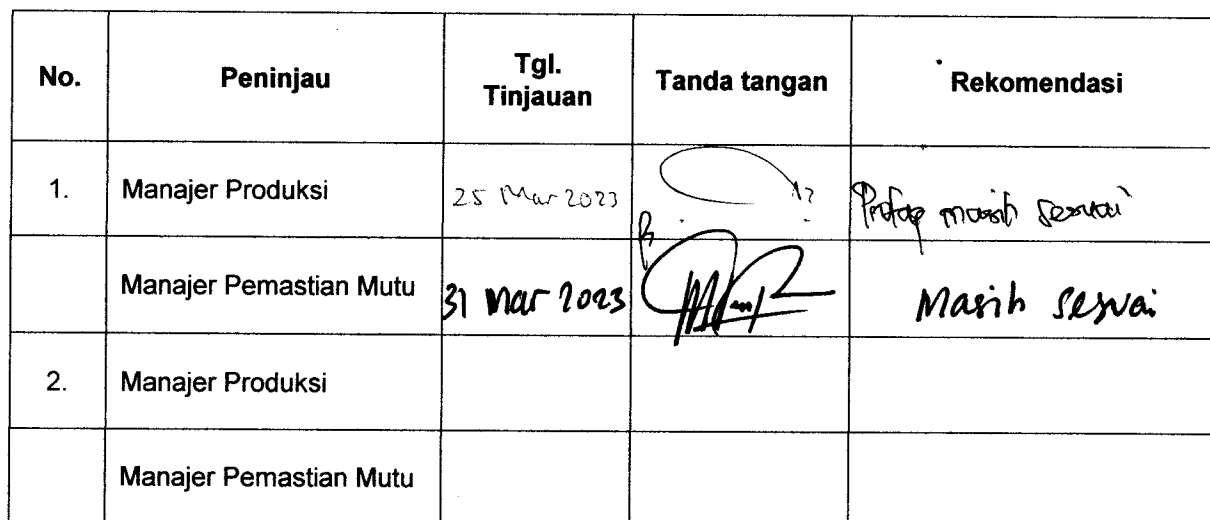 No. Peninjau Tgl. Tinjauan Tanda tangan Rekomendasi
1. Manajer Produksi 25 Mar 2023 masih sesuai
Manajer Pemastian Mutu 31 Mar 2023 Masih sesuai
2. Manajer Produksi
Manajer Pemastian Mutu